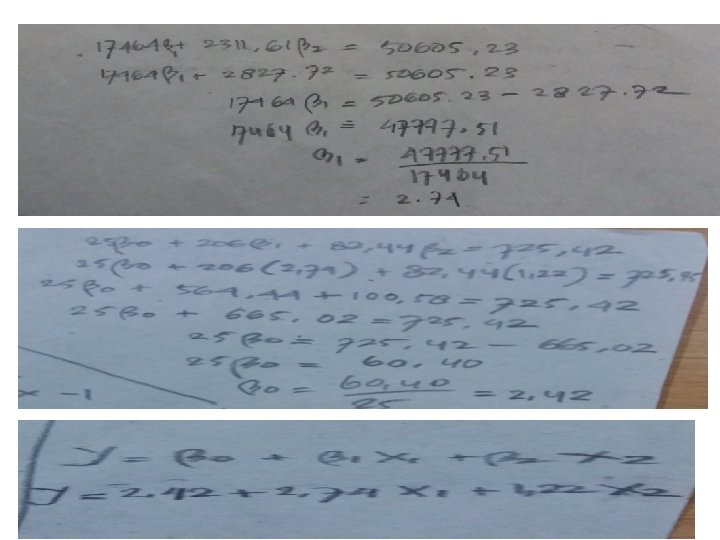 17464β1 + 2311,61β2 = 50605,23
17464β1 + 2827.72 = 50605.23
17464β1 = 50605.23 - 2827.72
17464 β1 = 47777.51
β1 = 47777.51
17464
= 2.74
25β0 + 206β1 + 82,44β2 = 725,42
25β0 + 206(2,74) + 82,44(1,22) =
25β0 + 564,44 + 100,58 = 725,42
25β0 + 665,02 = 725,42
25β0 = 725,42 - 665,02
25β0 = 60,40
x - 1
β0 = 60,40 = 2,42
25
Y = β0 + β1 X1 + β2 X2
Y = 2.42 + 2,74 X1 + 1,22 X2